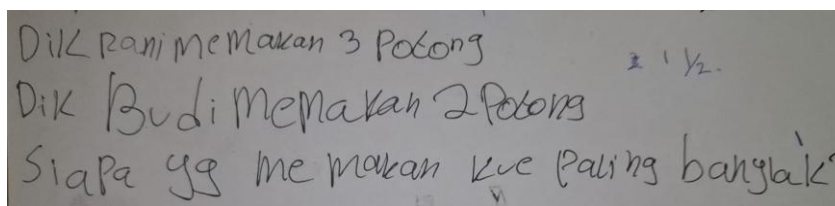 Dik Rani memakan 3 Potong
1 1/2.
Dik Budi memakan 2 Potong
Siapa yg me makan kue Paling banyak